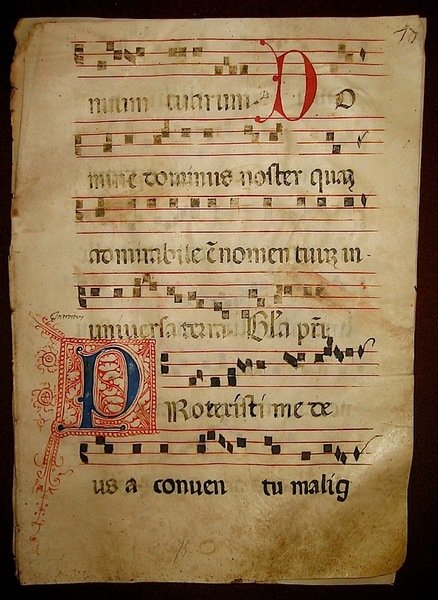 nuum tuarum D O
mine dominus noster quaz
admirabile ē nomen tuuz in-
universa terra Gl'a pr̄i
PRotexisti me de
us a conuen tu malig